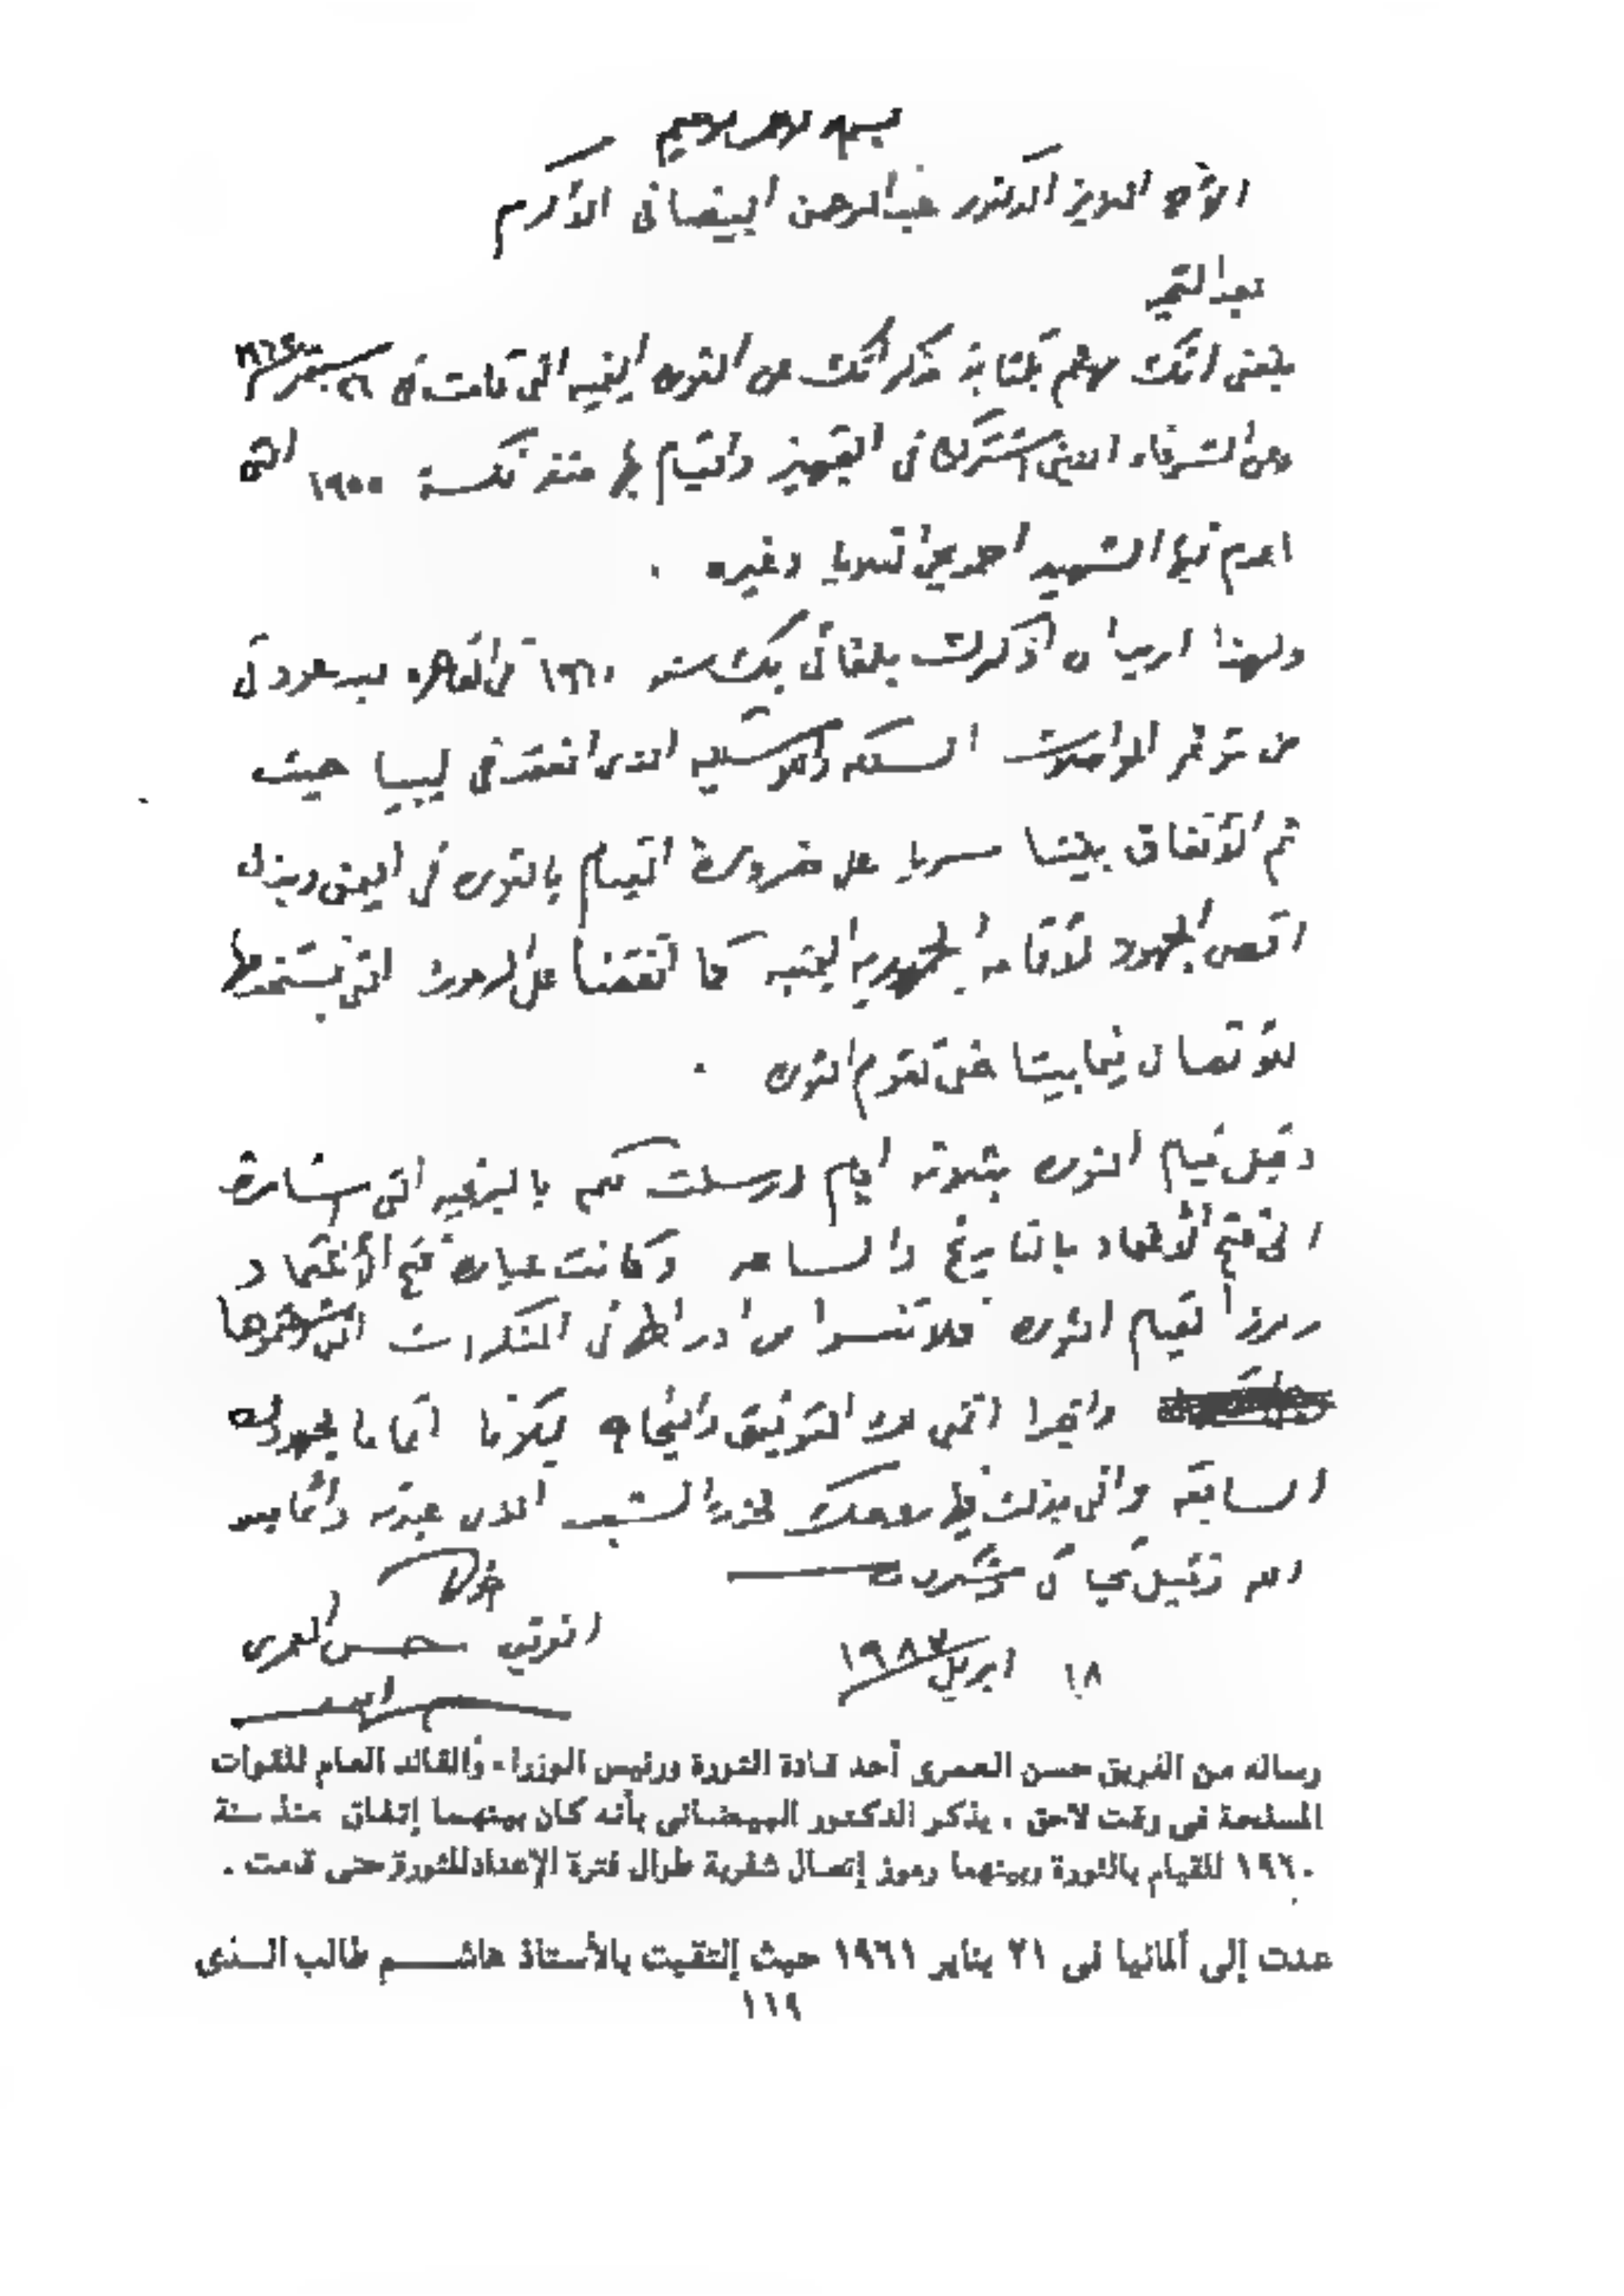 بسم الله الرحمن الرحيم
الأخ العزيز الدكتور عبدالرحمن البيضاني الأكرم
بعد التحية
بلغني انك مهتم بكتابة مذكراتك عن الثورة اليمنية التي قامت في ٢٦ سبتمبر
وعن الشرفاء الذين اشتركوا في التجهيز والقيام بها منذ نكسة ١٩٥٥ التي
اعدم فيها الشهيد احمد يحيى الثلايا وغيره .
ولهذا اريد ان اذكرك بلقائي بك سنه ١٩٦٠ في القاهره بعد عودتي
من مؤتمر المواصلات السلكيه واللاسلكيه الذي انعقد في ليبيا حيث
تم الأتفاق بيننا سريا على ضرورة القيام بالثوره في اليمن وبذل
اقصى الجهود لأقامه الجمهوريه اليمنيه كما اتفقنا على الرموز التي نستخدمها
للأتصال فيما بيننا حتى تقوم الثوره .
وقبل قيام الثوره بثلاثه ايام ارسلت لكم بالبرقيه التي اشارة
الى فتح الأعتماد بالتاريخ والساعه وكانت عباره فتح الأعتماد
رمزا لقيام الثوره فلا تنسوا من ادراجها في المذكرات التي
واخيرا اتمنى لك التوفيق والنجاح
السابقه
الله وتقبل تحياتي وشكري
١٨ ابريل ١٩٨٣
اخوك
الفريق حسن العمري
رسالة من الفريق حسن العمرى أحد قادة الثورة ورئيس الوزراء والقائد العام للقوات
المسلحة فى وقت لاحق ، يذكر الدكتور البيضانى بأنه كان بينهما إتفاق منذ سنة
١٩٦٠ للقيام بالثورة وبينهما رموز إتصال شفرية طوال فترة الإعداد للثورة حتى قامت .
عدت إلى ألمانيا فى ٢١ يناير ١٩٦١ حيث إلتقيت بالأستاذ هاشم طالب الذى
١١٩